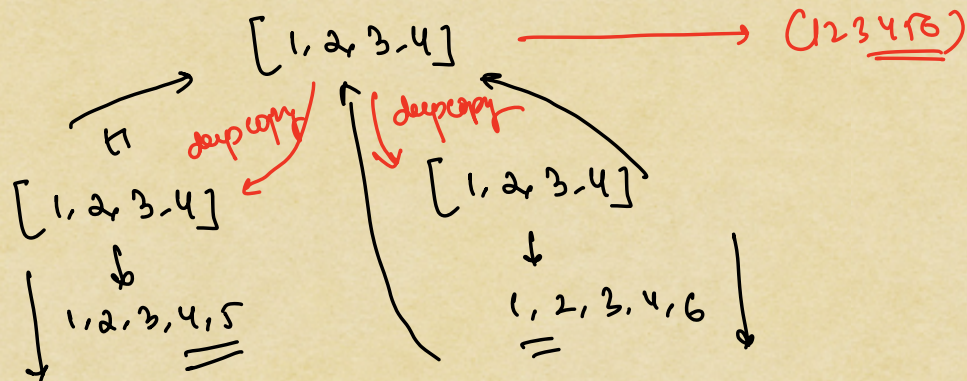 [1, 2, 3, 4] (1 2 3 4 5 6)
deepcopy deepcopy
[1, 2, 3, 4] [1, 2, 3, 4]
1, 2, 3, 4, 5 1, 2, 3, 4, 6